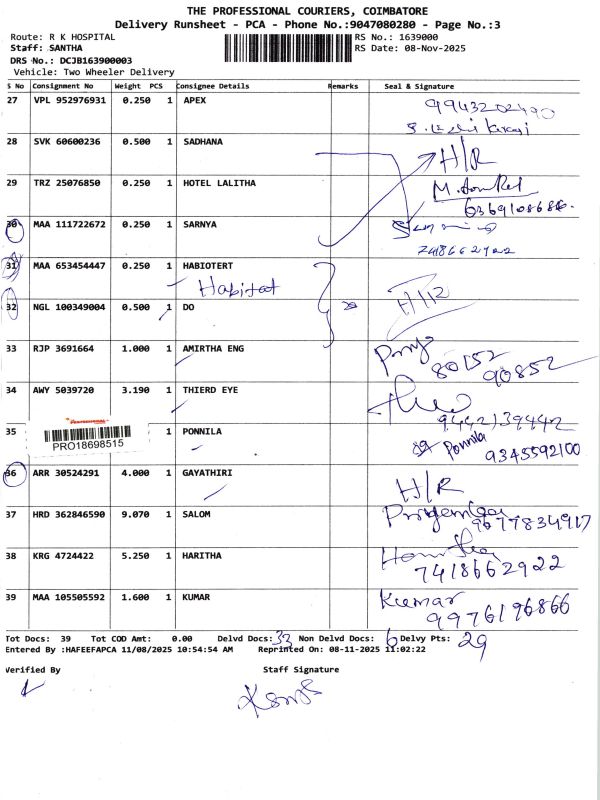 THE PROFESSIONAL COURIERS, COIMBATORE
Delivery Runsheet - PCA - Phone No.:9047080280 - Page No.:3
Route: R K HOSPITAL RS No.: 1639000
Staff: SANTHA RS Date: 08-Nov-2025
DRS No.: DCJB163900003
Vehicle: Two Wheeler Delivery
S No Consignment No Weight PCS Consignee Details Remarks Seal & Signature
27 VPL 952976931 0.250 1 APEX 9943202490
28 SVK 60600236 0.500 1 SADHANA H/R
29 TRZ 25076850 0.250 1 HOTEL LALITHA
6369108686
30 MAA 111722672 0.250 1 SARNYA
7418662922
31 MAA 653454447 0.250 1 HABIOTERT
Habitat
32 NGL 100349004 0.500 1 DO
33 RJP 3691664 1.000 1 AMIRTHA ENG Priya
80152
90852
34 AWY 5039720 3.190 1 THIERD EYE
9442139442
PROFESSIONAL
PRO18698515
35 1 PONNILA Ponnila
9345592100
36 ARR 30524291 4.000 1 GAYATHIRI H/R
37 HRD 362846590 9.070 1 SALOM
9677834917
38 KRG 4724422 5.250 1 HARITHA
7418662922
39 MAA 105505592 1.600 1 KUMAR Kumar
9976196866
Tot Docs: 39 Tot COD Amt: 0.00 Delvd Docs: 33 Non Delvd Docs: 6 Delvy Pts: 29
Entered By :HAFEEFAPCA 11/08/2025 10:54:54 AM Reprinted On: 08-11-2025 11:02:22
Verified By Staff Signature